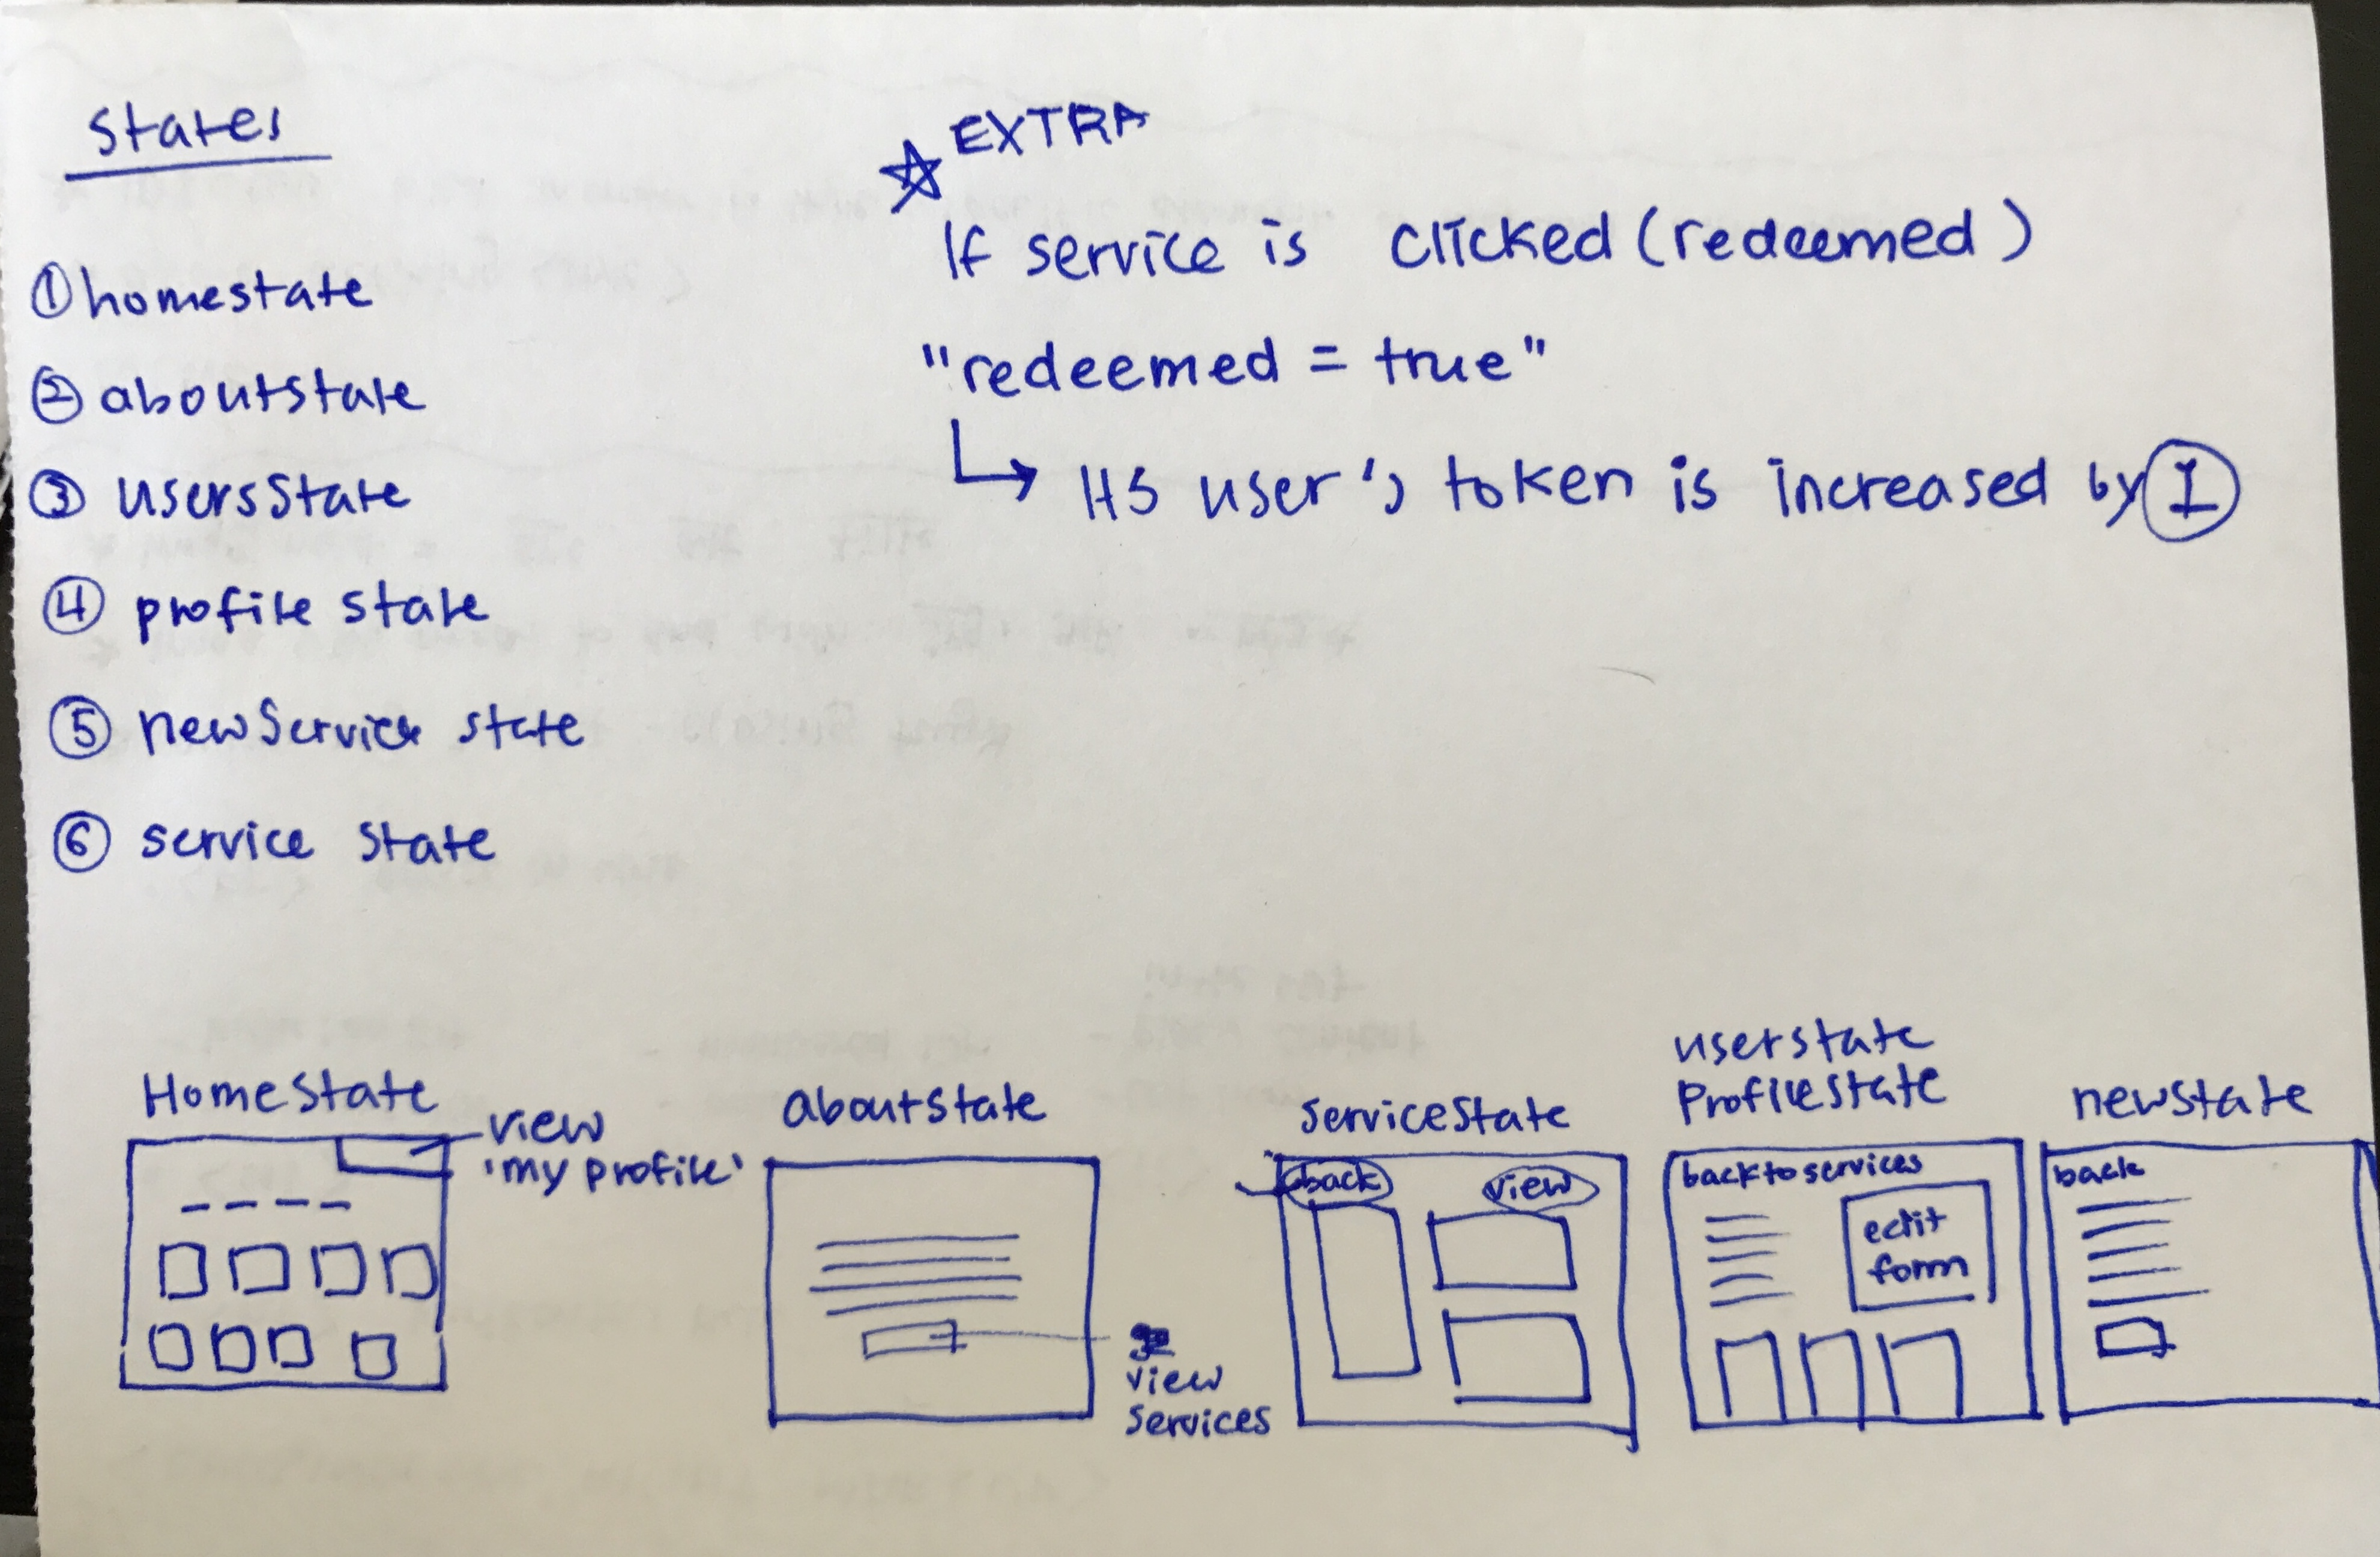 States
① homestate
② aboutstate
③ usersState
④ profile state
⑤ newService state
⑥ service state
☆ EXTRA
If service is clicked (redeemed)
"redeemed = true"
↳ its user's token is increased by ①
HomeState
view
'my profile'
aboutstate
view
services
serviceState
back view
userstate
Profilestate
back to services
edit
form
newstate
back